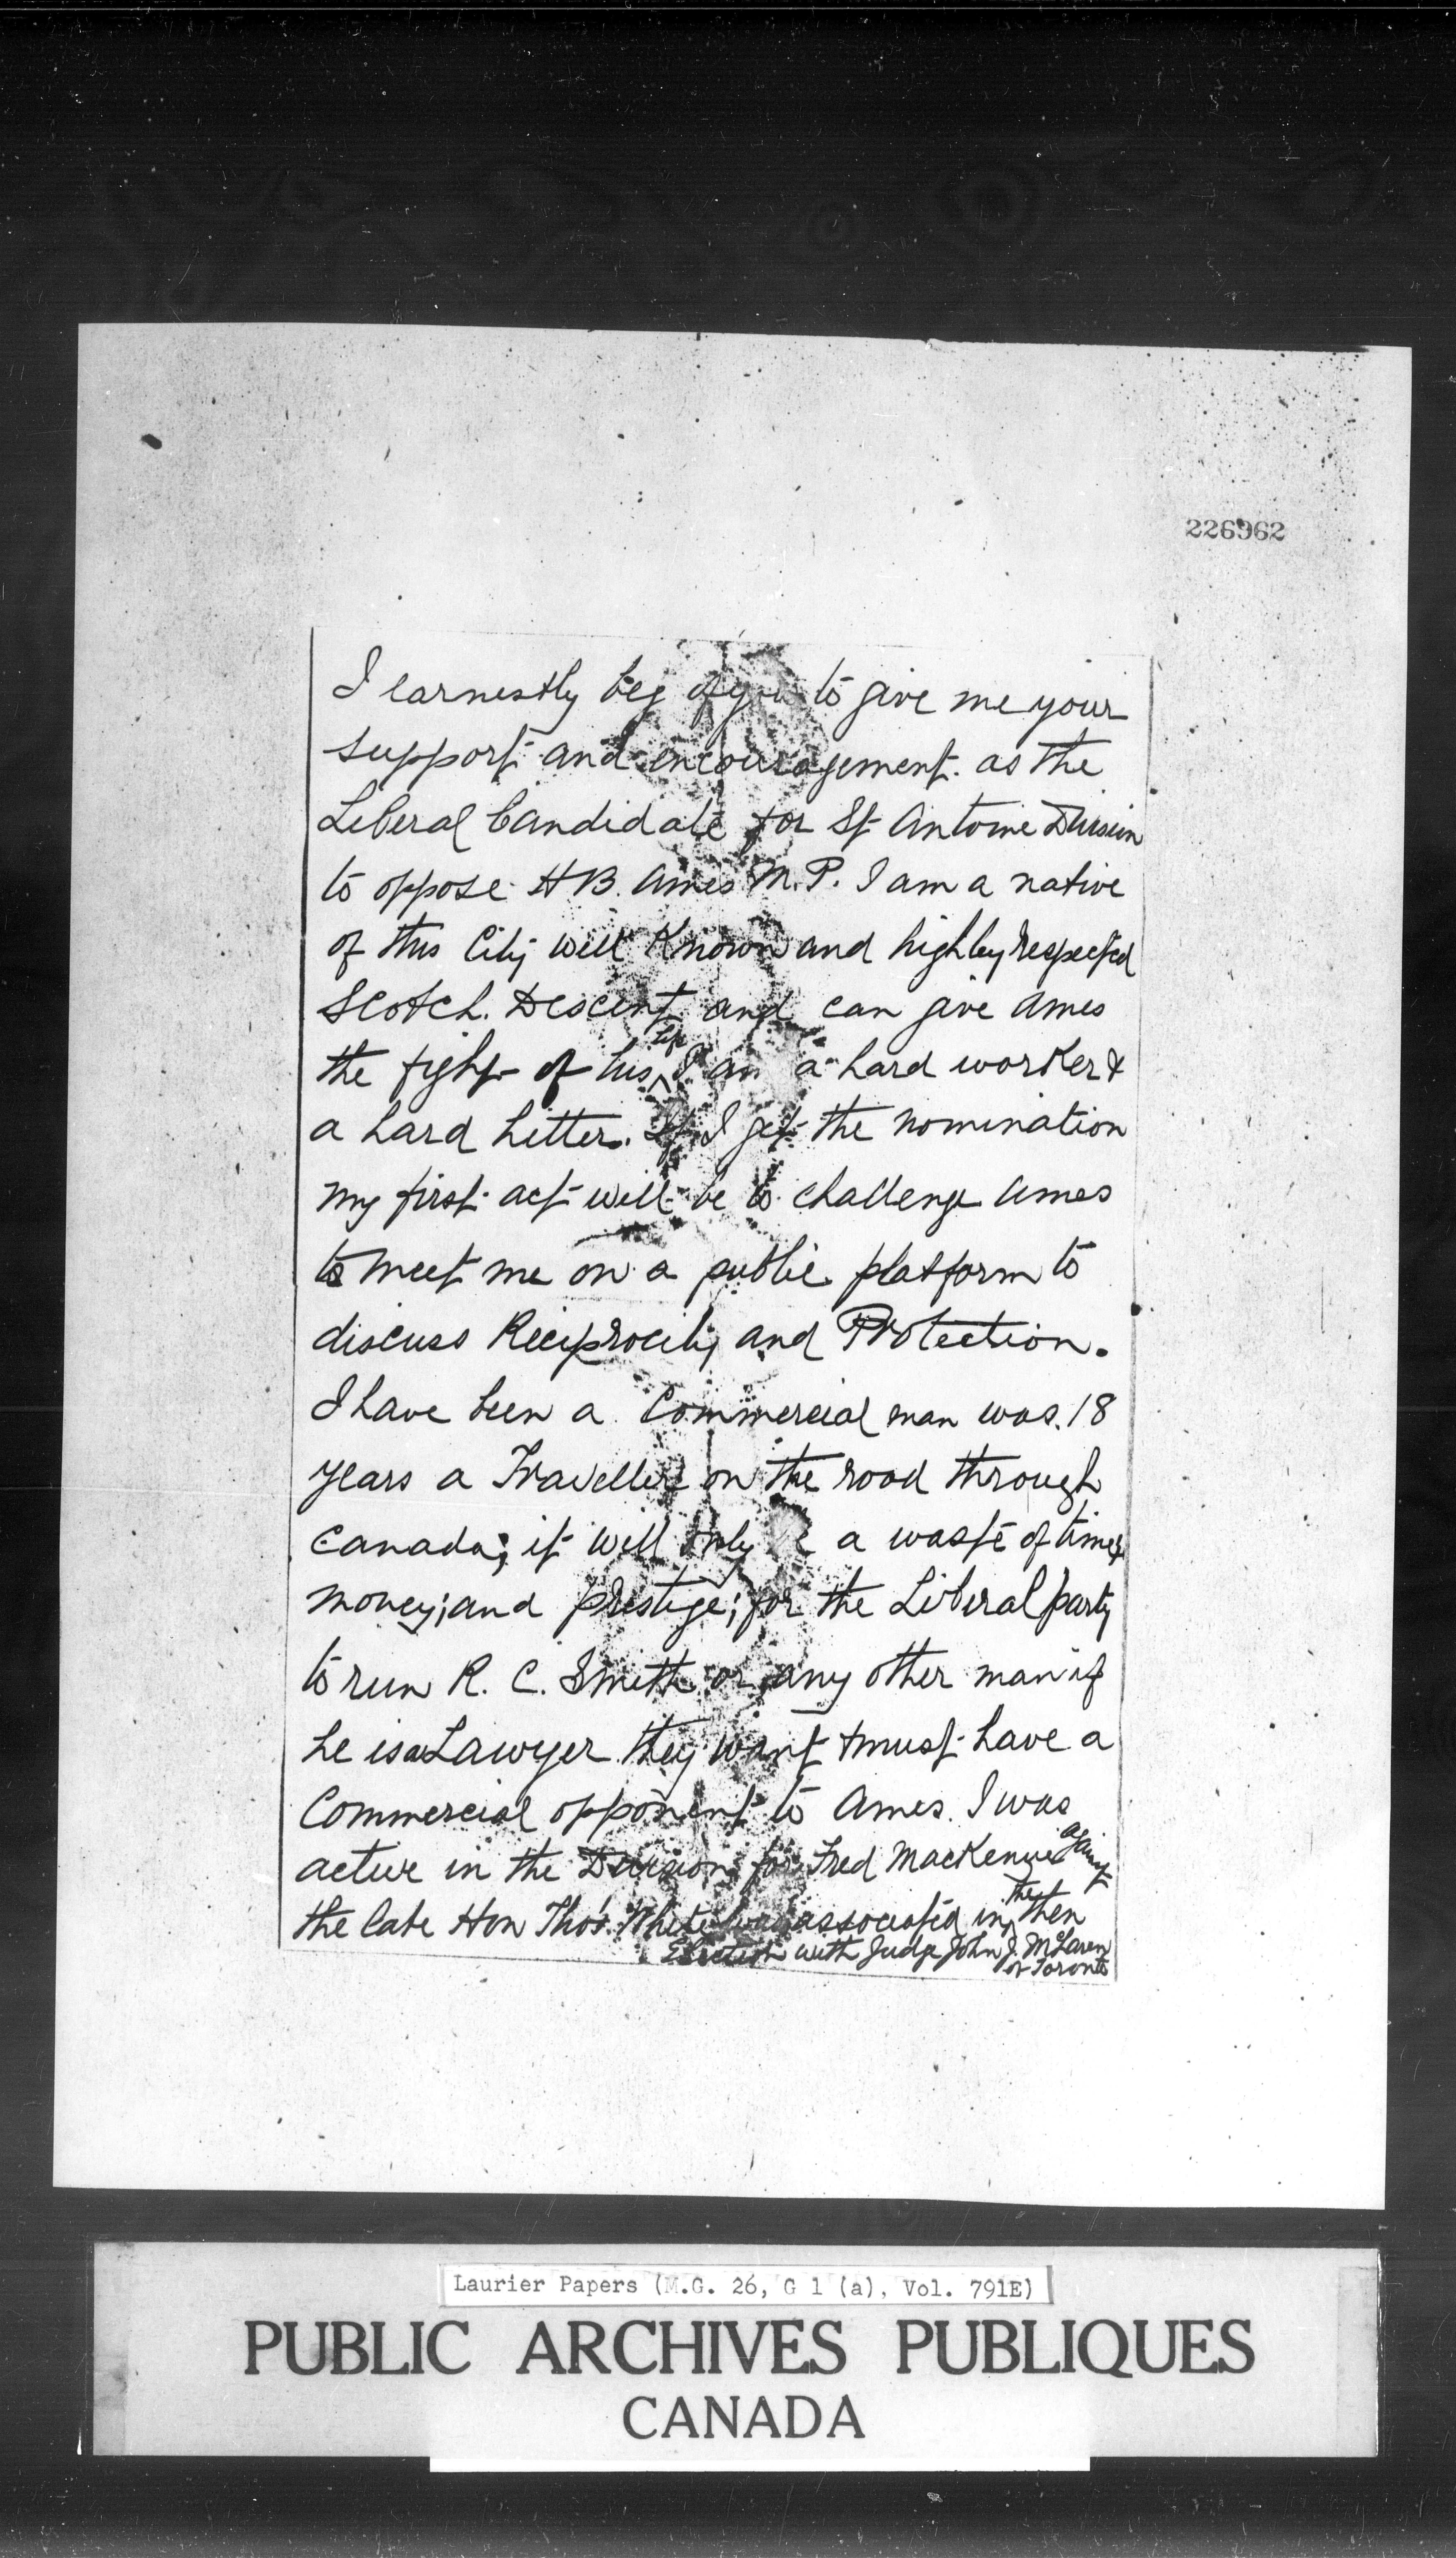 226962
I earnestly beg of you to give me your
support and encouragement. as the
Liberal Candidate for St Antoine Division
to oppose H B. Ames M.P. I am a native
of this City well Known and highley respected
Scotch. Descent and can give Ames
the fight of his life I am a hard worker &
a hard hitter. If I get the nomination
my first act will be to challenge Ames
to meet me on a public platform to
discuss Reciprocity and Protection.
I have been a Commercial man was 18
years a Traveller on the road through
Canada; it will only be a waste of time &
money; and prestige; for the Liberal party
to run R. C. Smith or any other man if
he is a Lawyer they want & must have a
Commercial opponent to Ames. I was
active in the Division for Fred MacKenzie against
the late Hon Thos. White I was associated in the then
Election with Judge John J. McLaren
of Toronto
Laurier Papers (M.G. 26, G 1 (a), Vol. 791E)
PUBLIC ARCHIVES PUBLIQUES
CANADA